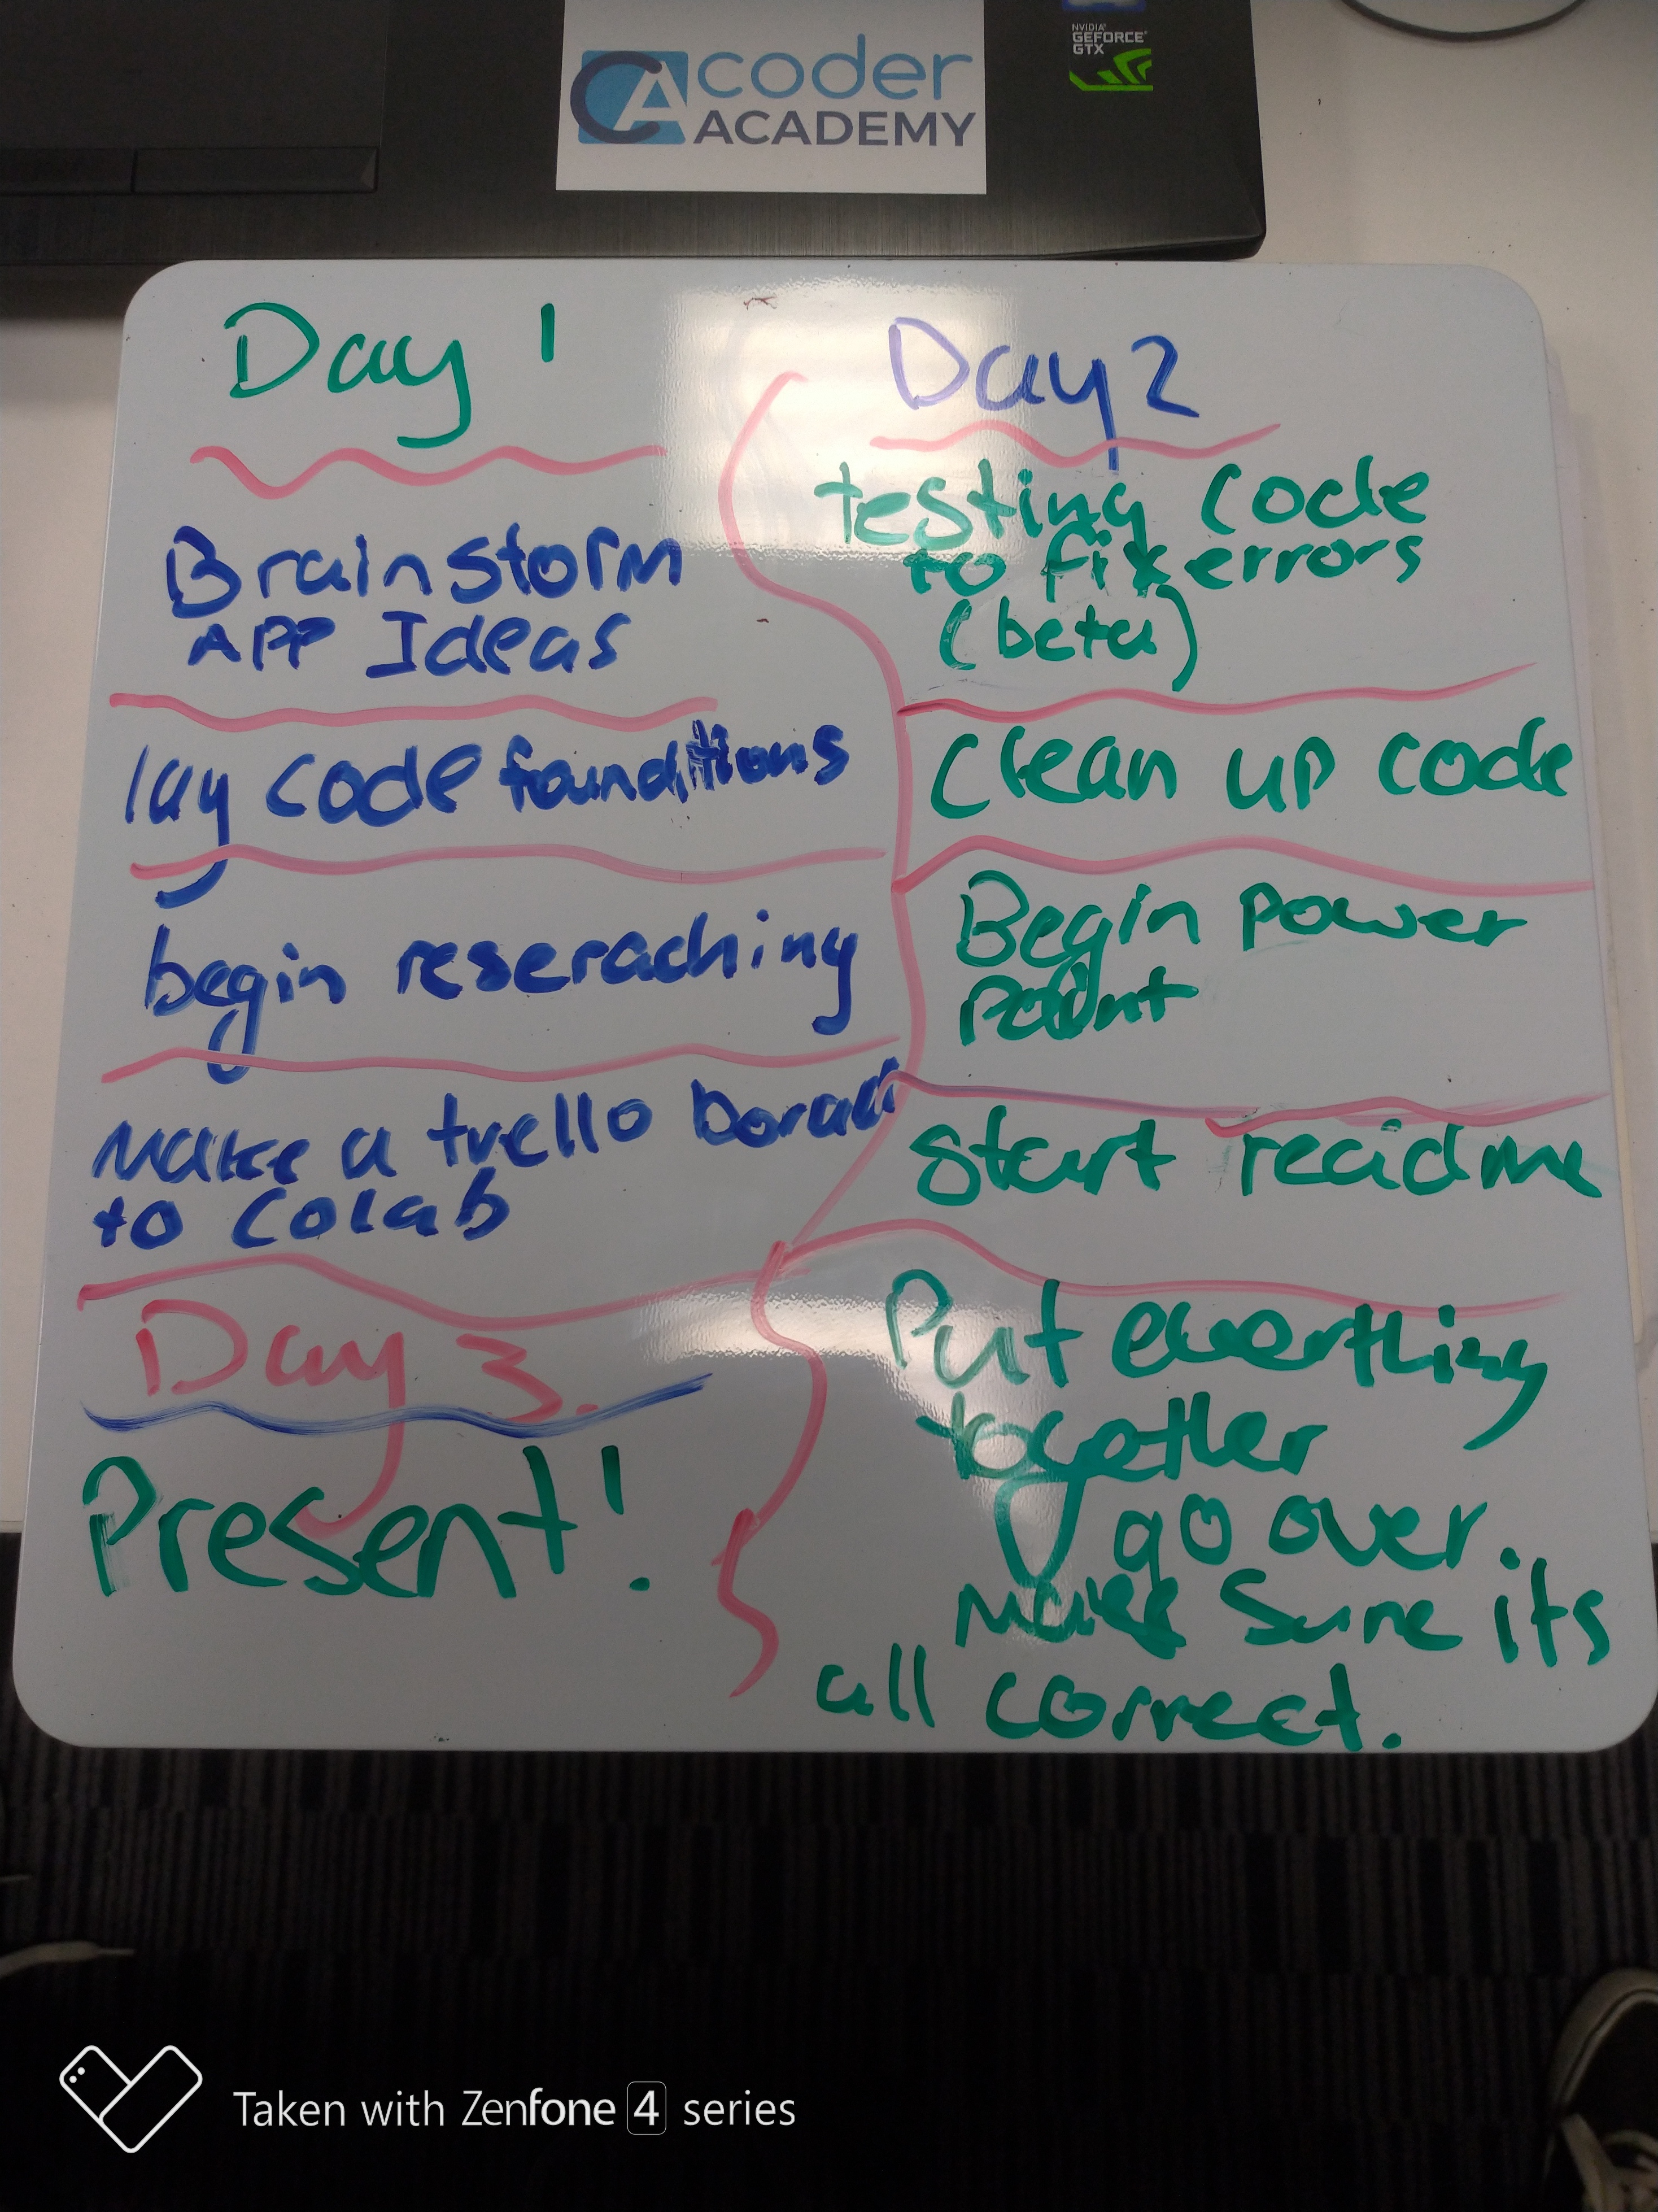 coder
ACADEMY
NVIDIA
GEFORCE
GTX
Day 1
Brainstorm
APP Ideas
lay code foundations
begin reseraching
Make a trello borad
to Colab
Day 2
testing code
to fix errors
(beta)
Clean up code
Begin power
point
Start readme
Put everthing
together
go over.
Make Sure its
all correct.
Day 3.
Present!
Taken with Zenfone 4 series